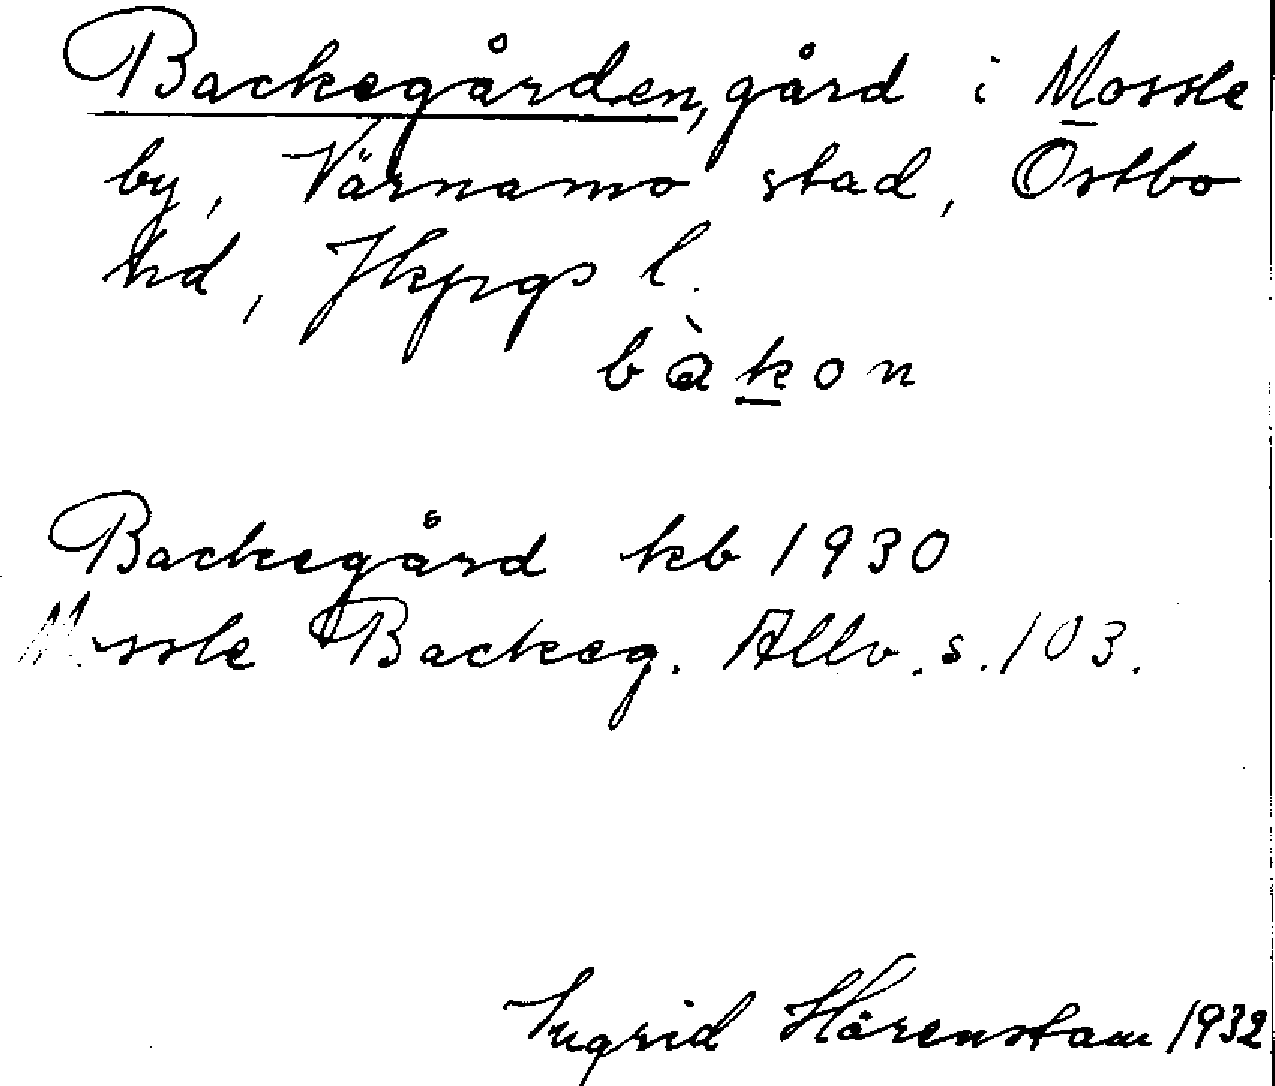 Backegården, gård i Mossle
by, Värnamo stad, Östbo
hd, Jkpgs l.
bàkon
Backegård kb 1930
Mossle Backeg. Allv. s. 103.
Ingrid Härenstam 1932